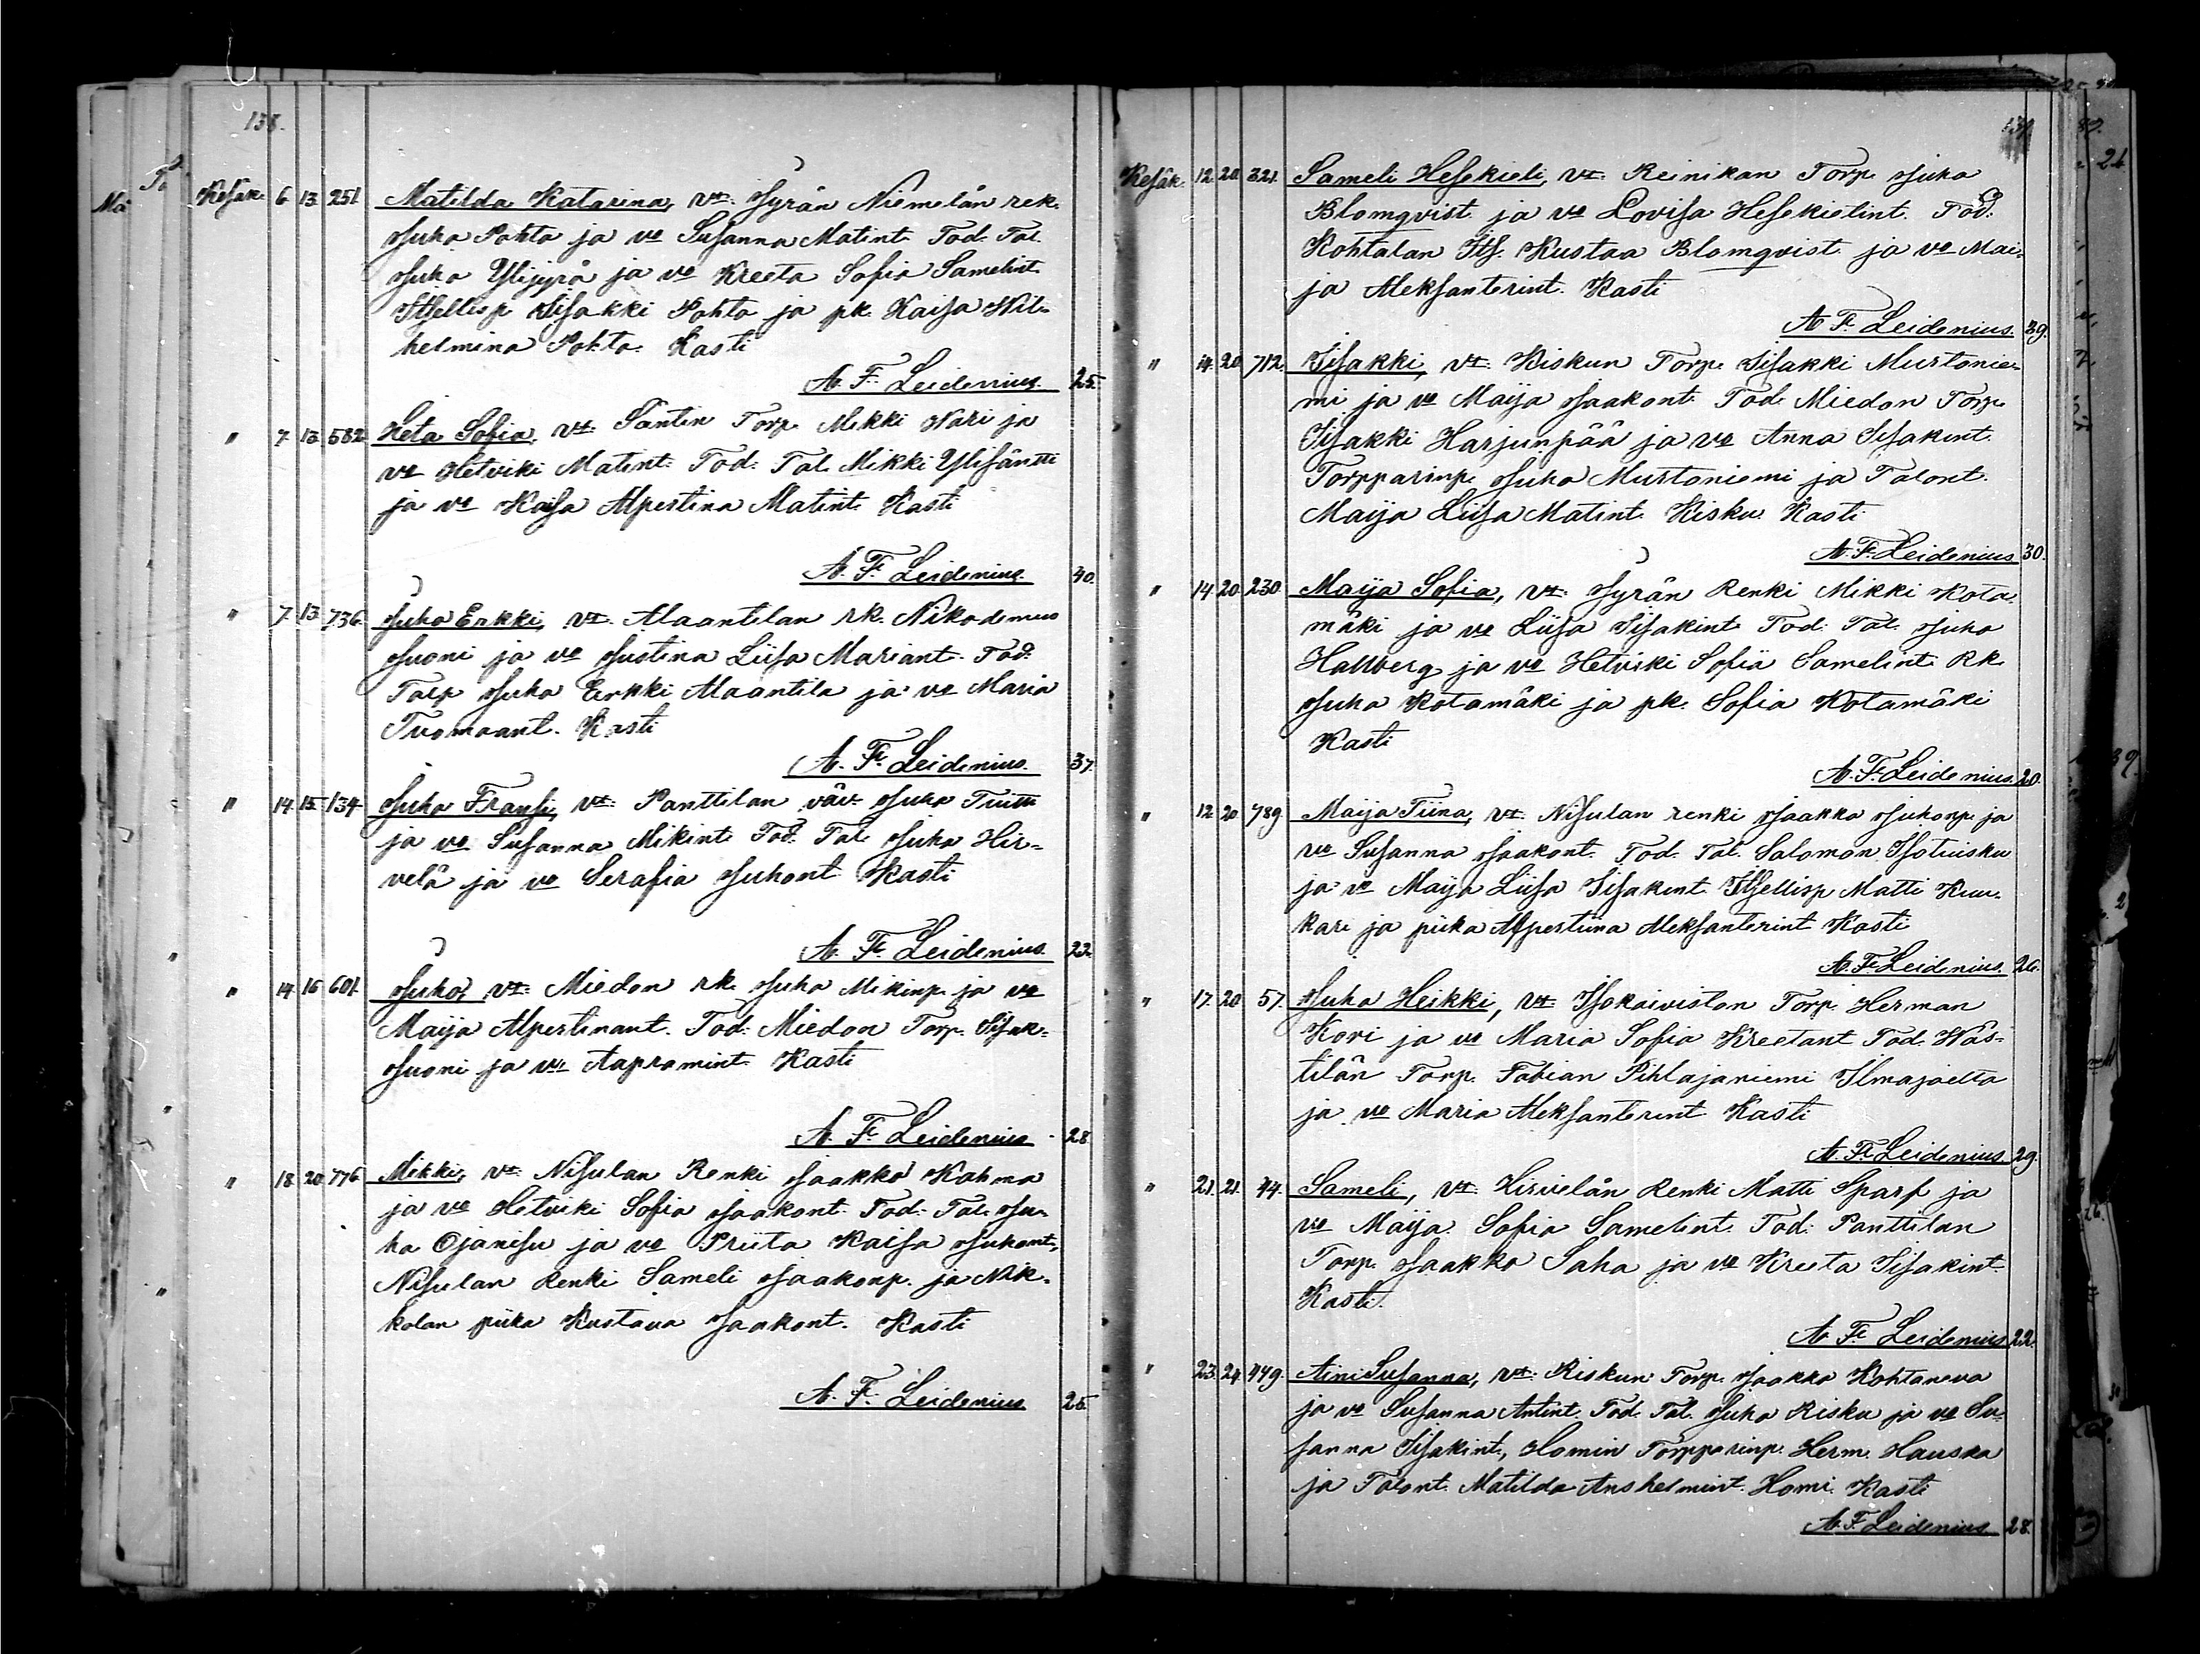 138.
Kesäk. 6. 13. 251. Matilda Katarina, vt: Jyrän Niemelän rek.
Juho Pohto ja vo Susanna Matint. Tod. Tal.
Juho Ylijyrä ja vo Kreeta Sofia Samelint.
Itsellisp. Iisakki Pohto ja pk. Kaisa Wil-
helmina Pohto. Kasti
A. F. Leidenius. 25.
" 7. 13. 582. Heta Sofia, vt: Säntin Torp. Mikki Hari ja
vo Hetviki Matint. Tod: Tal. Mikki Ylisäntti
ja vo Kaisa Alpertina Matint. Kasti
A. F. Leidenius. 40.
" 7. 13. 736. Juho Erkki, vt: Alaantilan rk. Nikodemus
Juoni ja vo Justina Liisa Mariant. Tod:
Talp. Juho Erkki Alaantila ja vo Maria
Tuomaant. Kasti
A. F. Leidenius. 37.
" 14. 15. 134. Juho Fransi, vt: Panttilan väv. Juho Tuitti
ja vo Susanna Mikint. Tod: Tal. Juho Hir-
velä ja vo Serafia Juhont. Kasti
A. F. Leidenius. 22.
" 14. 16. 601. Juho, vt: Miedon rk. Juho Mikinp. ja vo
Maija Alpertinant. Tod: Miedon Torp. Iisak-
Juoni ja vo Aapramint. Kasti
A. F. Leidenius. 28.
" 18. 20. 776. Mikki, vt: Nisulan Renki Jaakko Kahma
ja vo Hetviki Sofia Jaakont. Tod: Tal. Ju-
ho Ojanisu ja vo Priita Kaisa Juhont.,
Nisulan Renki Sameli Jaakonp. ja Nik-
kolan piika Kustava Jaakont. Kasti
A. F. Leidenius 25.
139.
Kesäk. 12. 20. 321. Sameli Hesekieli, vt: Reinikan Torp. Juho
Blomqvist ja vo Lovisa Hesekielint. Tod:
Kohtalan Its. Kustaa Blomqvist ja vo Mai-
ja Aleksanterint. Kasti
A. F. Leidenius. 39.
" 14. 20. 712. Iisakki, vt: Kiskun Torp. Iisakki Murtonie-
mi ja vo Maija Jaakont. Tod. Miedon Torp.
Iisakki Harjunpää ja vo Anna Iisakint.
Torpparinp. Juho Murtoniemi ja Talont.
Maija Liisa Matint. Kisku Kasti
A. F. Leidenius 30.
" 14. 20. 230. Maija Sofia, vt: Jyrän Renki Mikki Kota-
mäki ja vo Liisa Iisakint. Tod. Tal. Juho
Hallberg ja vo Hetviki Sofia Samelint. Rk.
Juho Kotamäki ja pk. Sofia Kotamäki
Kasti
A. F. Leidenius. 20.
" 12. 20. 789. Maija Tiina, vt: Nisulan renki Jaakko Juhonp. ja
vo Susanna Jaakont. Tod. Tal. Salomon
ja vo Maija Liisa Iisakint. Itsellisp. Matti Kuu-
kari ja piika Alpertiina Aleksanterint Kasti
A. F. Leidenius. 26.
" 17. 20. 57. Juho Heikki, vt: Isokoiviston Torp. Herman
Kori ja vo Maria Sofia Kreetant Tod. Wäs-
tilän Torp. Fabian Pihlajaniemi Ilmajoelta
ja vo Maria Aleksanterint Kasti
A. F. Leidenius. 29.
" 21. 21. 44. Sameli, vt: Hirvelän Renki Matti Sparf ja
vo Maija Sofia Samelint. Tod: Panttilan
Torp. Jaakko Saha ja vo Kreeta Iisakint.
Kasti.
A. F. Leidenius 22.
" 23. 24. 449. Aini Susanna, vt: Riskun Torp. Jaakko Kohtaneva
ja vo Susanna Antint. Tod. Tal. Juho Risku ja vo Su-
sanna Iisakint., Homin Torpparinp. Herm. Hauska
ja Talont. Matilda Anshelmint. Homi. Kasti
A. F. Leidenius 28.